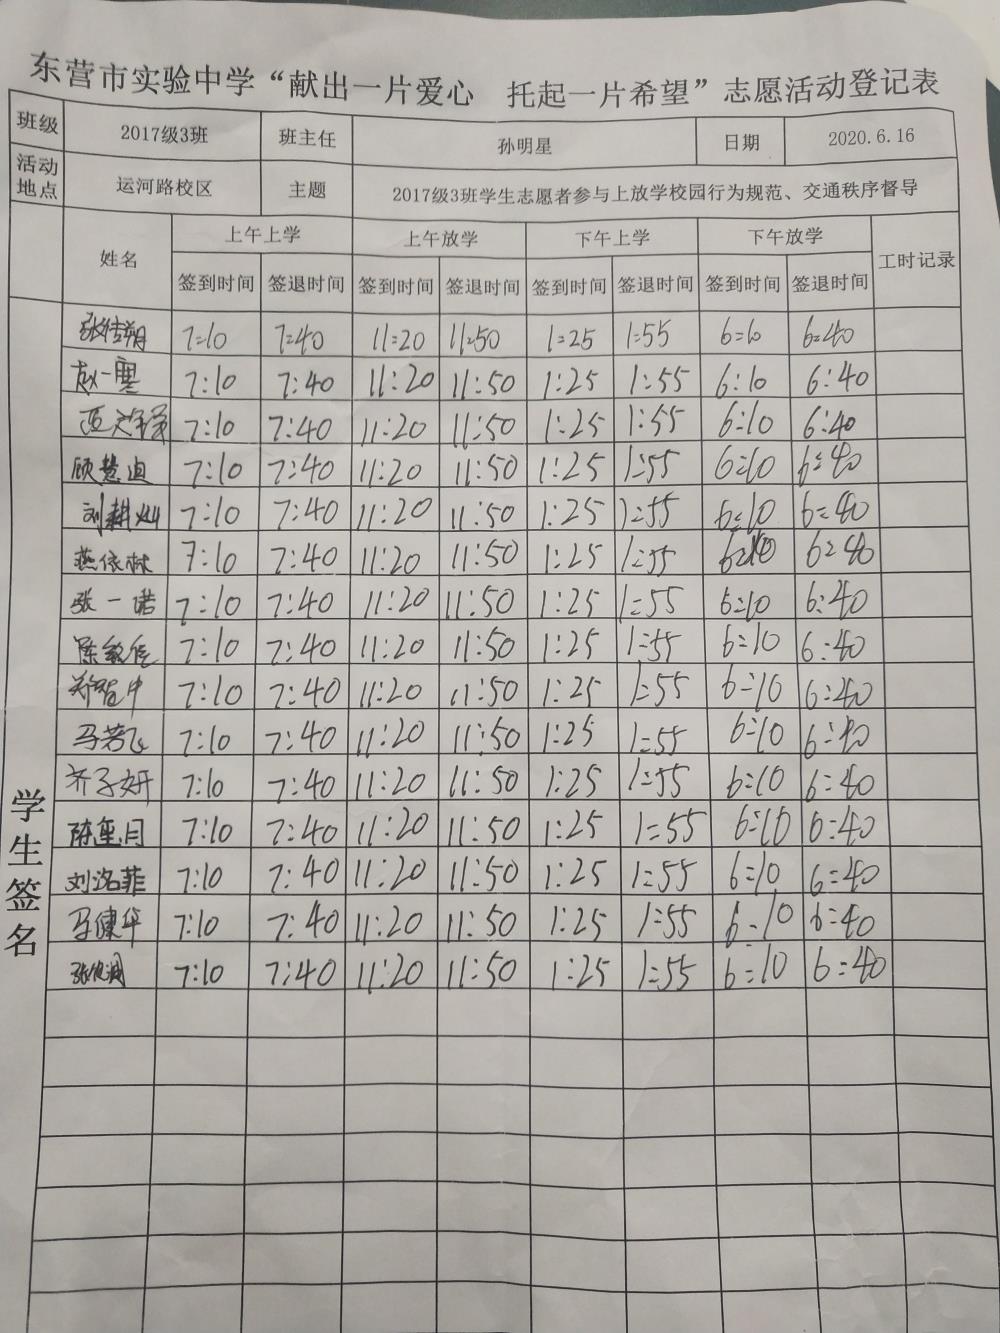 东营市实验中学“献出一片爱心 托起一片希望”志愿活动登记表
班级 2017级3班 班主任 孙明星 日期 2020.6.16
活动地点 运河路校区 主题 2017级3班学生志愿者参与上放学校园行为规范、交通秩序督导
姓名 上午上学 上午放学 下午上学 下午放学 工时记录
签到时间 签退时间 签到时间 签退时间 签到时间 签退时间 签到时间 签退时间
学生签名
7:10 7:40 11:20 11:50 1:25 1:55 6:10 6:40
赵一 7:10 7:40 11:20 11:50 1:25 1:55 6:10 6:40
7:10 7:40 11:20 11:50 1:25 1:55 6:10 6:40
顾慧迪 7:10 7:40 11:20 11:50 1:25 1:55 6:10 6:40
刘耕灿 7:10 7:40 11:20 11:50 1:25 1:55 6:10 6:40
燕依林 7:10 7:40 11:20 11:50 1:25 1:55 6:10 6:40
张一诺 7:10 7:40 11:20 11:50 1:25 1:55 6:10 6:40
陈 7:10 7:40 11:20 11:50 1:25 1:55 6:10 6:40
郑智中 7:10 7:40 11:20 11:50 1:25 1:55 6:10 6:40
马若飞 7:10 7:40 11:20 11:50 1:25 1:55 6:10 6:40
齐子妍 7:10 7:40 11:20 11:50 1:25 1:55 6:10 6:40
陈玺月 7:10 7:40 11:20 11:50 1:25 1:55 6:10 6:40
刘洺菲 7:10 7:40 11:20 11:50 1:25 1:55 6:10 6:40
马健华 7:10 7:40 11:20 11:50 1:25 1:55 6:10 6:40
7:10 7:40 11:20 11:50 1:25 1:55 6:10 6:40